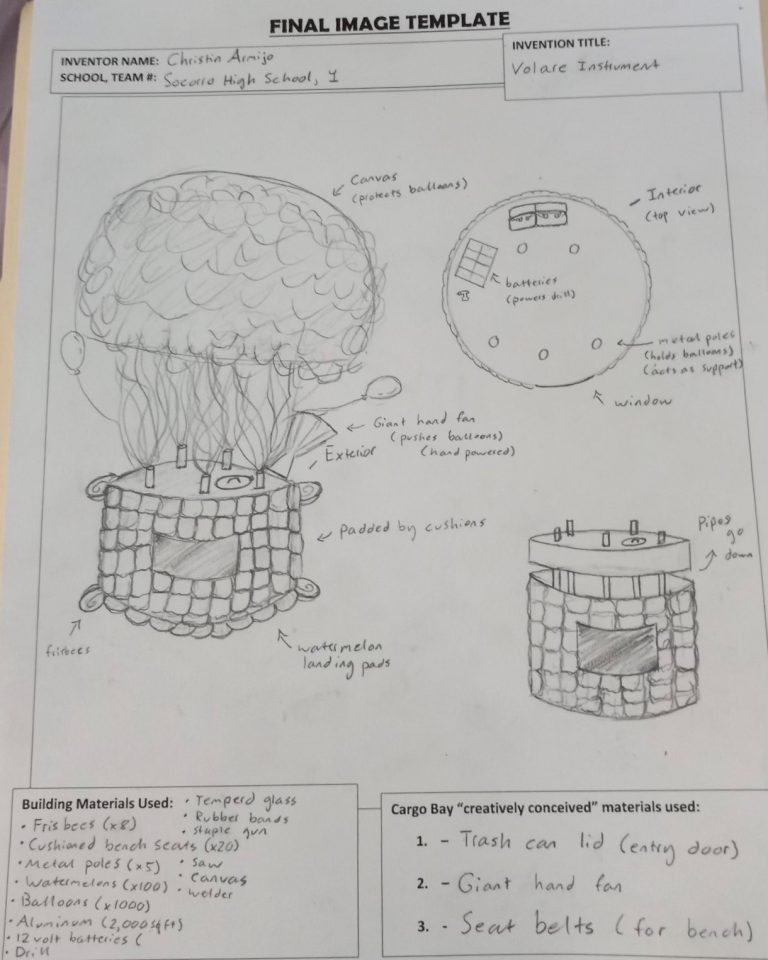 FINAL IMAGE TEMPLATE
INVENTOR NAME: Christin Armijo
SCHOOL, TEAM #: Socorro High School, 1
INVENTION TITLE:
Volare Instrument
Canvas
(protects balloons)
Interior
(top view)
batteries
(powers drill)
metal poles
(holds balloons)
(acts as support)
window
Giant hand fan
(pushes balloons)
(hand powered)
Exterior
Padded by cushions
Pipes
go
down
frisbees
watermelon
landing pads
Building Materials Used:
• Frisbees (x8)
• Cushioned bench seats (x20)
• Metal poles (x5)
• Watermelons (x100)
• Balloons (x1000)
• Aluminum (2,000 sq ft)
• 12 volt batteries (
• Drill
• Temperd glass
• Rubber bands
• Staple gun
• Saw
• Canvas
• Welder
Cargo Bay "creatively conceived" materials used:
1. - Trash can lid (entry door)
2. - Giant hand fan
3. - Seat belts (for bench)